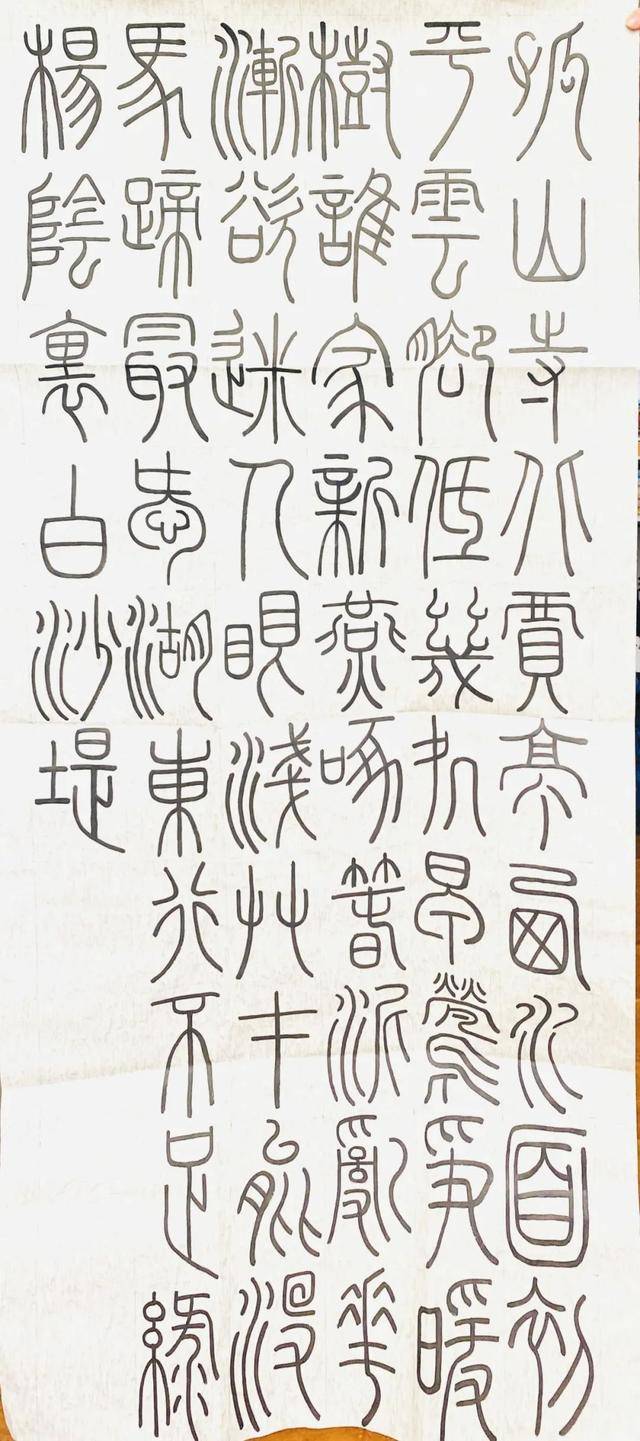 孤山寺北賈亭西水面初
平雲腳低幾處早鶯爭暖
樹誰家新燕啄春泥亂花
漸欲迷人眼淺草才能沒
馬蹄最愛湖東行不足綠
楊陰裏白沙堤